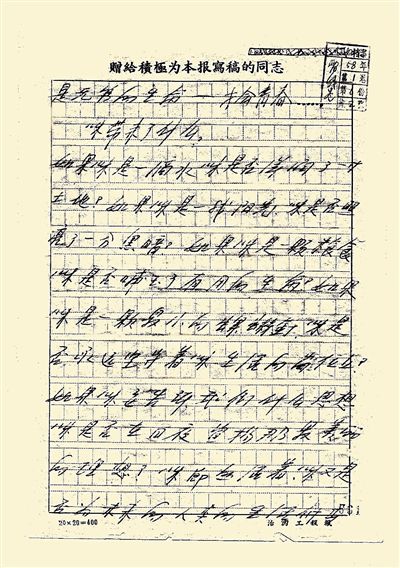 贈給積極为本报寫稿的同志
58年
的生命
你带来了什么?
如果你是一滴水你是否滋润了一寸
土地?如果你是一线阳光,你是否照
亮了一分黑暗?如果你是一颗粮食
你是否哺育了有用的生命?如果
你是一颗最小的螺丝钉,你是
否永远坚守着你生活的岗位?
如果你要告诉我们什么思想
你是否在日夜宣扬那最美丽
的理想?你既然活着,你又是
否为未来的人类的生活付出
20×20=400
治沩工程报